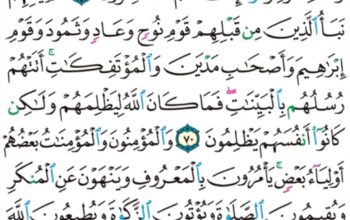 نَبَأُ ٱلَّذِينَ مِن قَبْلِهِمْ قَوْمِ نُوحٍ وَعَادٍ وَثَمُودَ وَقَوْمِ
إِبْرَٰهِيمَ وَأَصْحَٰبِ مَدْيَنَ وَٱلْمُؤْتَفِكَٰتِ ۚ أَتَتْهُمْ
رُسُلُهُم بِٱلْبَيِّنَٰتِ ۖ فَمَا كَانَ ٱللَّهُ لِيَظْلِمَهُمْ وَلَٰكِن
كَانُوٓا۟ أَنفُسَهُمْ يَظْلِمُونَ ٧٠ وَٱلْمُؤْمِنُونَ وَٱلْمُؤْمِنَٰتُ بَعْضُهُمْ
أَوْلِيَآءُ بَعْضٍ ۚ يَأْمُرُونَ بِٱلْمَعْرُوفِ وَيَنْهَوْنَ عَنِ ٱلْمُنكَرِ
وَيُقِيمُونَ ٱلصَّلَوٰةَ وَيُؤْتُونَ ٱلزَّكَوٰةَ وَيُطِيعُونَ ٱللَّهَ